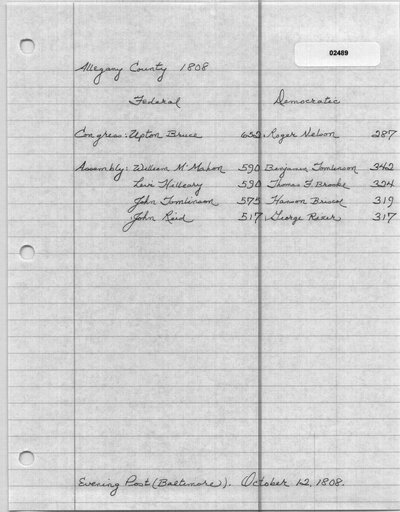 02489
Allegany County 1808
Federal Democratic
Congress: Upton Bruce 652. Roger Nelson 287
Assembly: William McMahon 590 Benjamin Tomlinson 342
Levi Hilleary 590 Thomas F. Brooke 324
John Tomlinson 575 Hanson Briscoe 319
John Reid 517. George Rizer 317
Evening Post (Baltimore). October 12, 1808.